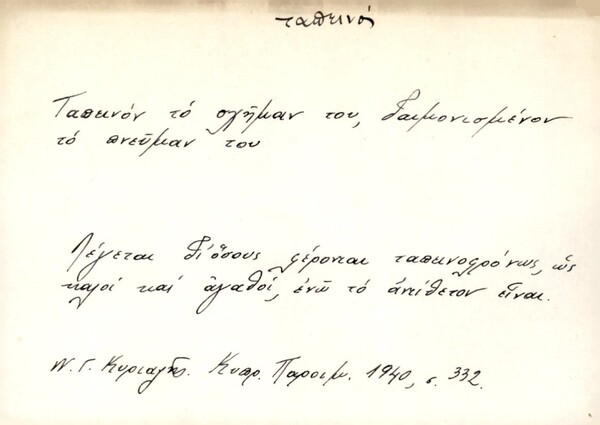 ταπεινός
Ταπεινόν τό σχῆμαν του, δαιμονισμένον
τό πνεῦμαν του
Λέγεται δι' ὅσους φέρονται ταπεινοφρόνως, ὡς
καλοί καί ἀγαθοί, ἐνῶ τό ἀντίθετον εἶναι.
Ν. Γ. Κυριαζῆς. Κυπρ. Παροιμ. 1940, σ. 332.